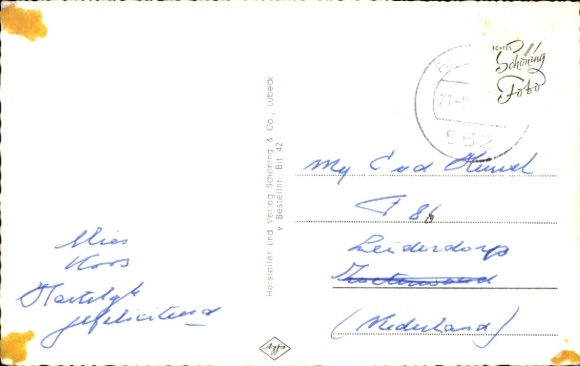 ECHTES
Schöning
Foto
21-
552
Hersteller und Verlag Schöning & Co., Lübeck
v Bestellnr. Bit 42
My
86
Leiderdorp
(Nederland)
Mies
Koos
Hartelijk
gefeliciteerd
Agfa